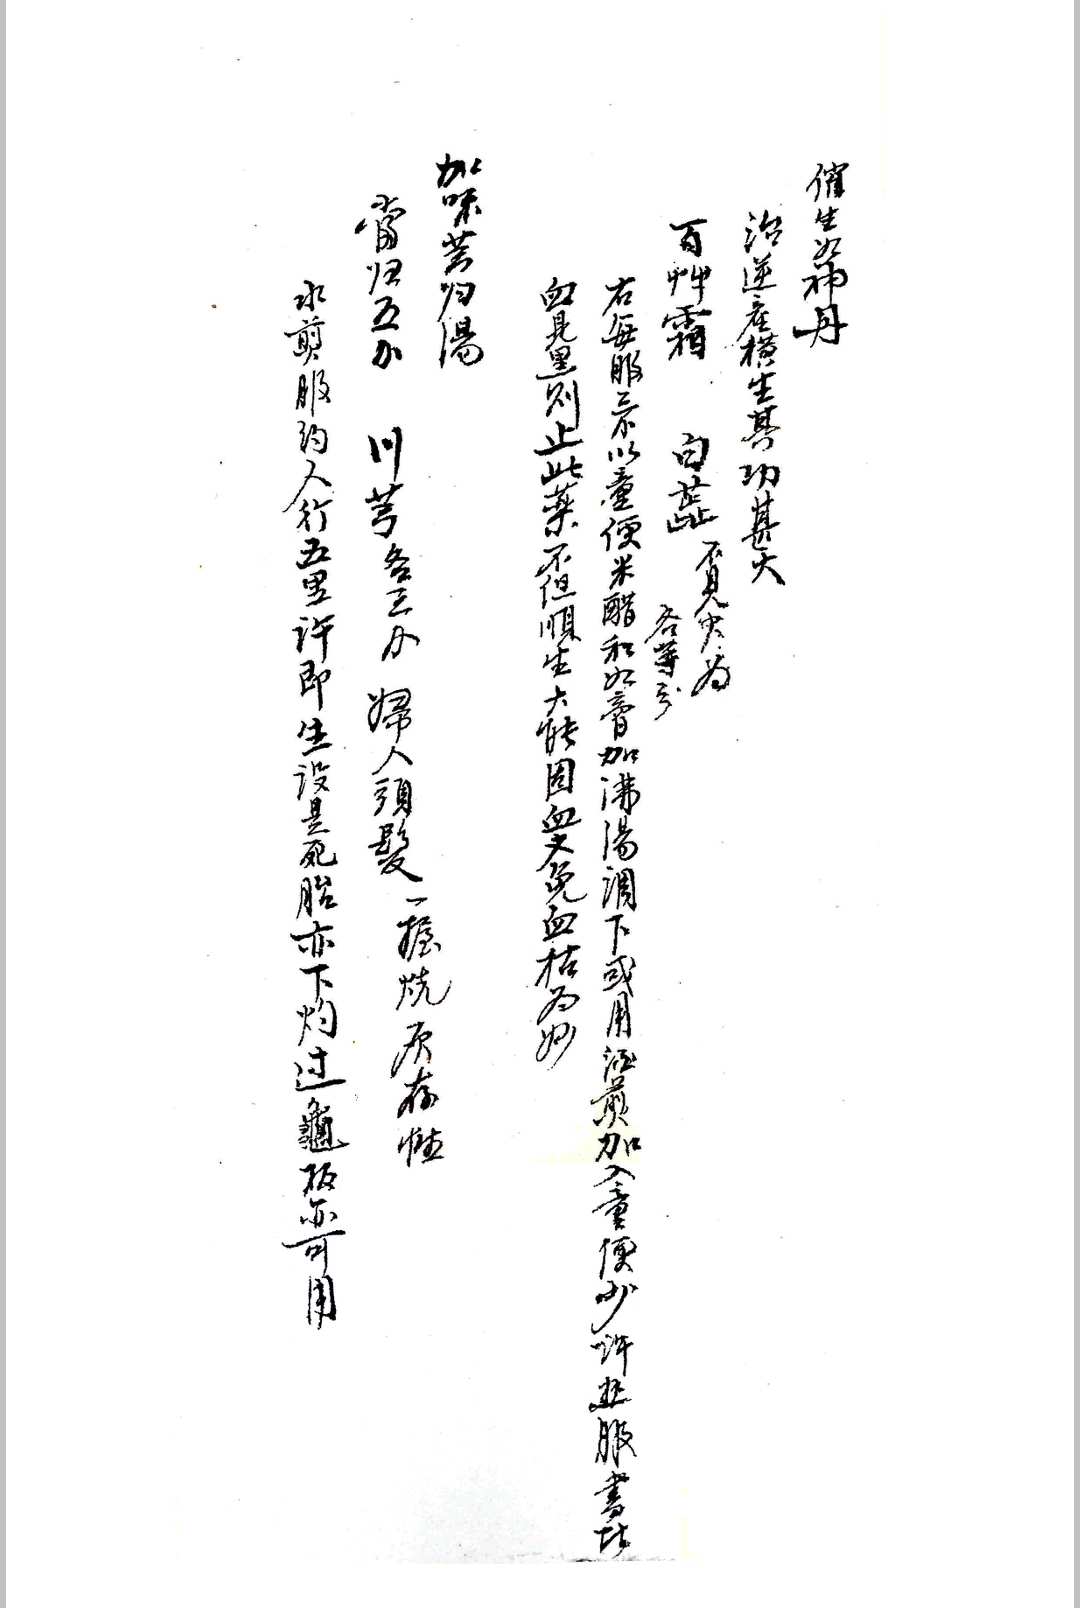 催生如神丹
治逆產橫生其功甚大
百艸霜 白芷 不見火為
各等分
右每服三爪以童便米醋和如膏加沸湯調下或用酒煎加入童便少許並服書
血見黑則止此藥不但順生大能固血又免血枯為妙
加味芎归湯
當归五分 川芎各三分 婦人頭髮一握燒灰存性
水煎服約人行五里許即生設是死胎亦下灼过龜板亦可用